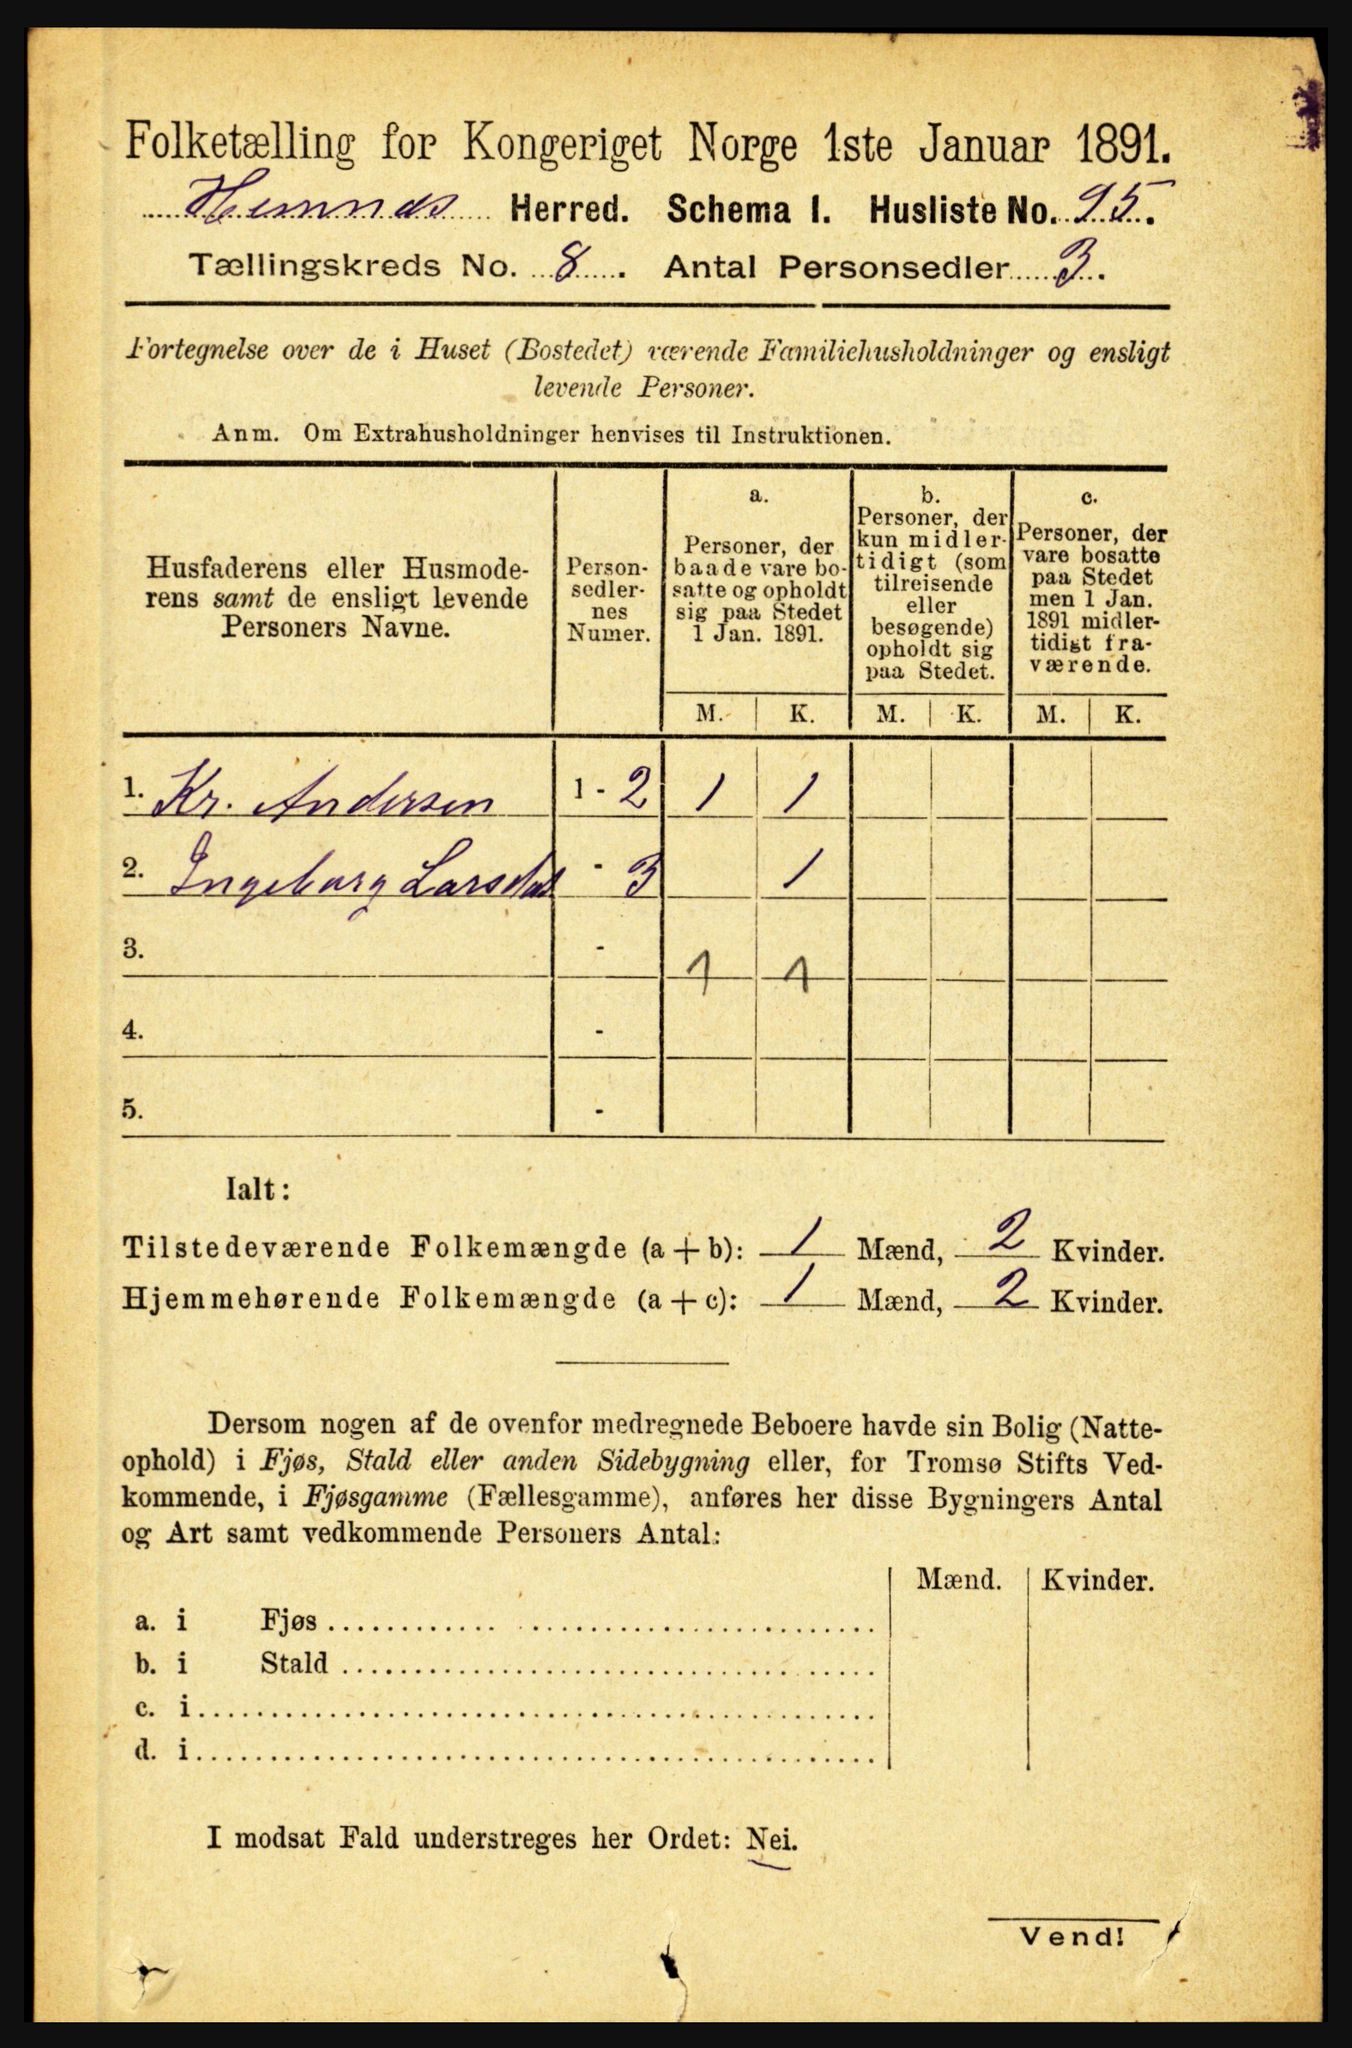 Folketælling for Kongeriget Norge 1ste Januar 1891.
Hemnæs Herred. Schema I. Husliste No. 95.
Tællingskreds No. 8. Antal Personsedler 3.
Fortegnelse over de i Huset (Bostedet) værende Familiehusholdninger og ensligt
levende Personer.
Anm. Om Extrahusholdninger henvises til Instruktionen.
Husfaderens eller Husmode-
rens samt de ensligt levende
Personers Navne.
Person-
sedler-
nes
Numer.
a.
Personer, der
baade vare bo-
satte og opholdt
sig paa Stedet
1 Jan. 1891.
b.
Personer, der
kun midler-
tidigt (som
tilreisende
eller
besøgende)
opholdt sig
paa Stedet.
c.
Personer, der
vare bosatte
paa Stedet
men 1 Jan.
1891 midler-
tidigt fra-
værende.
M. K. M. K. M. K.
1. Kr. Andersen 1 - 2 1 1
2. Ingeborg Larsdat - 3 1
3. - 1 1
4. -
5. -
Ialt:
Tilstedeværende Folkemængde (a + b): 1 Mænd, 2 Kvinder.
Hjemmehørende Folkemængde (a + c): 1 Mænd, 2 Kvinder.
Dersom nogen af de ovenfor medregnede Beboere havde sin Bolig (Natte-
ophold) i Fjøs, Stald eller anden Sidebygning eller, for Tromsø Stifts Ved-
kommende, i Fjøsgamme (Fællesgamme), anføres her disse Bygningers Antal
og Art samt vedkommende Personers Antal:
Mænd. Kvinder.
a. i Fjøs
b. i Stald
c. i
d. i
I modsat Fald understreges her Ordet: Nei.
Vend!